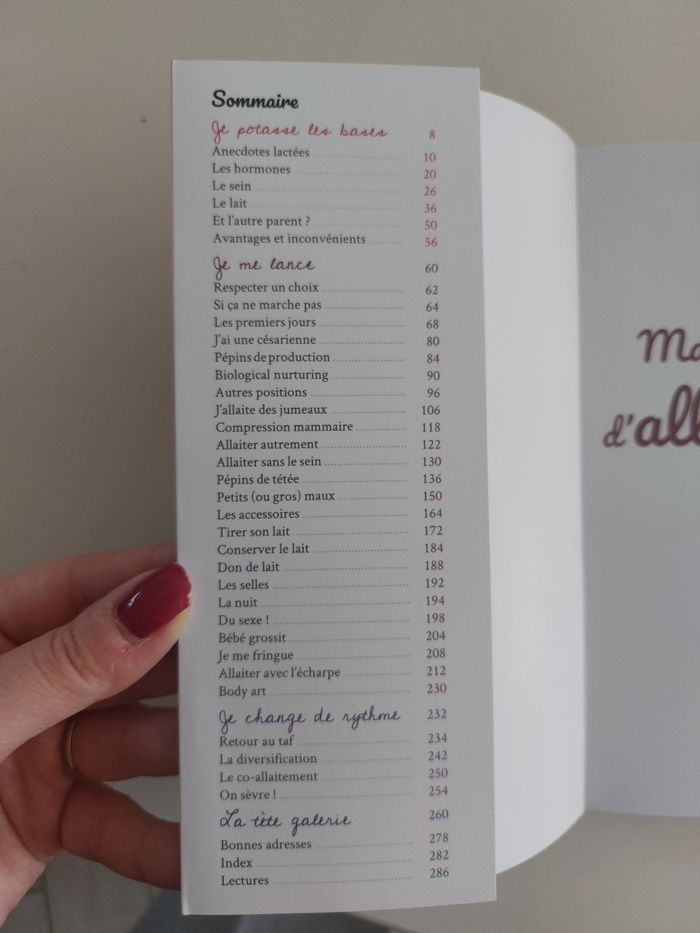 Sommaire
Je potasse les bases 8
Anecdotes lactées 10
Les hormones 20
Le sein 26
Le lait 36
Et l'autre parent ? 50
Avantages et inconvénients 56
Je me lance 60
Respecter un choix 62
Si ça ne marche pas 64
Les premiers jours 68
J'ai une césarienne 80
Pépins de production 84
Biological nurturing 90
Autres positions 96
J'allaite des jumeaux 106
Compression mammaire 118
Allaiter autrement 122
Allaiter sans le sein 130
Pépins de tétée 136
Petits (ou gros) maux 150
Les accessoires 164
Tirer son lait 172
Conserver le lait 184
Don de lait 188
Les selles 192
La nuit 194
Du sexe ! 198
Bébé grossit 204
Je me fringue 208
Allaiter avec l'écharpe 212
Body art 230
Je change de rythme 232
Retour au taf 234
La diversification 242
Le co-allaitement 250
On sèvre ! 254
La tète galerie 260
Bonnes adresses 278
Index 282
Lectures 286
d'all